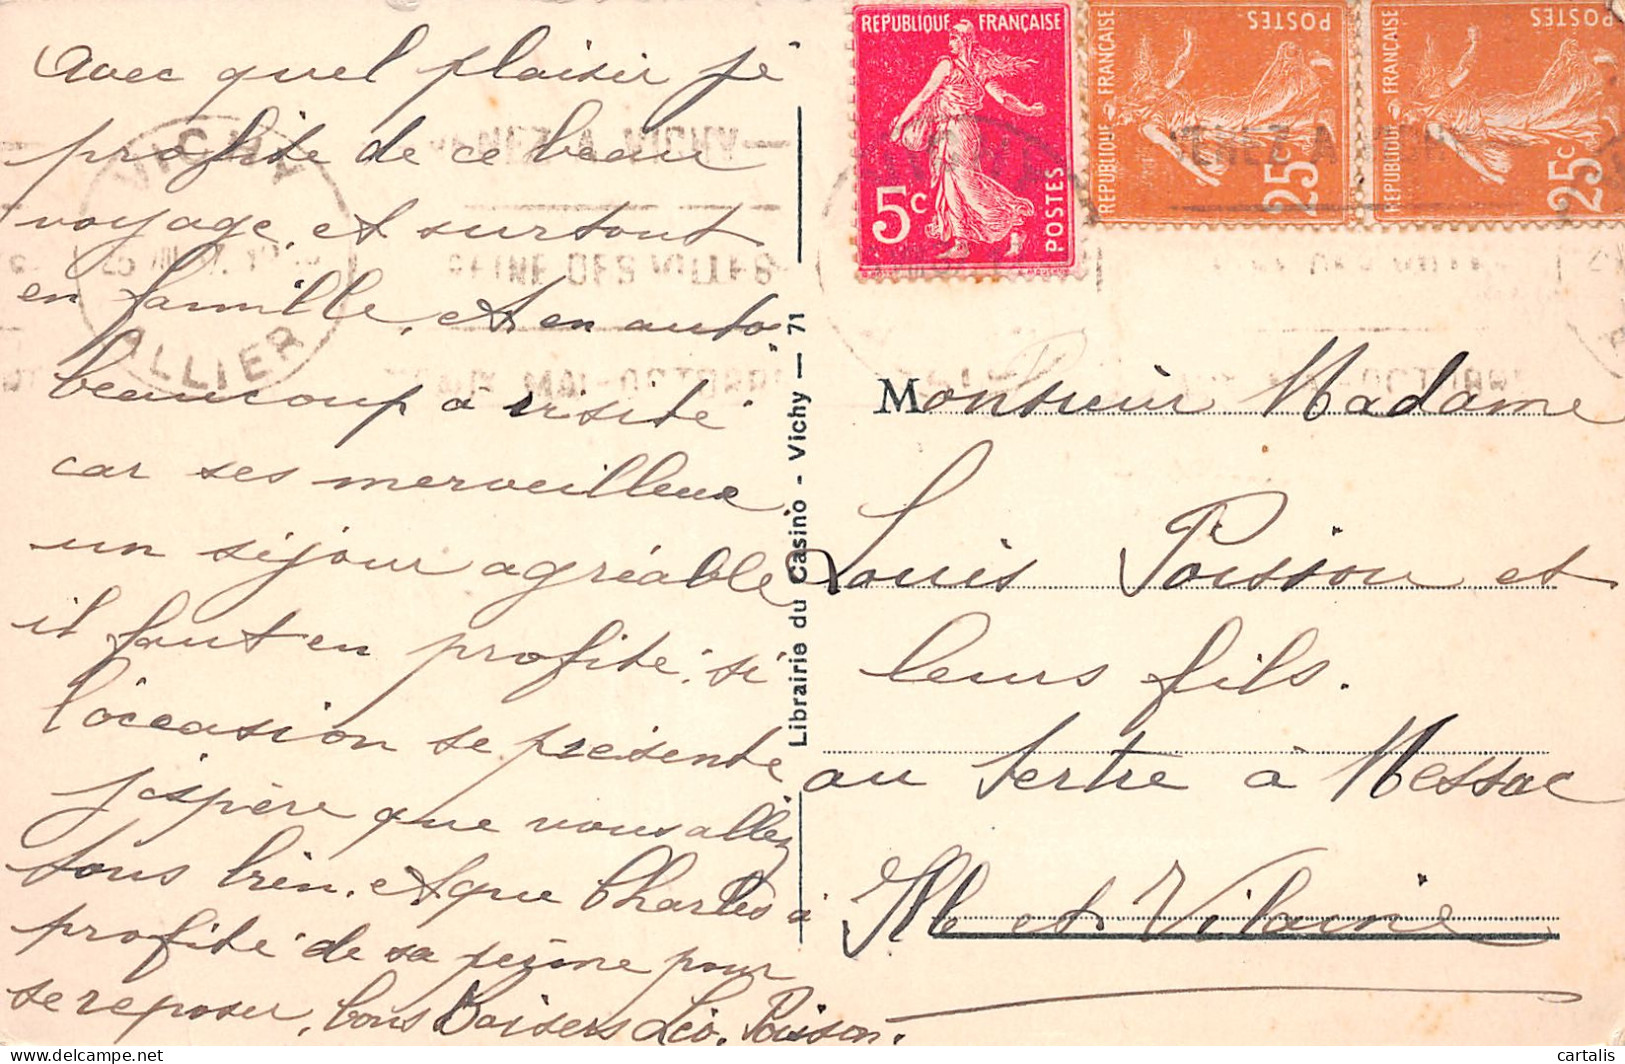 Avec quel plaisir je
profite de ce beau
voyage, et surtout
en famille, et en auto.
beaucoup a visité
car ses merveilleux
un séjour agréable
il faut en profité. si
l'occasion se présente
j'espère que vous allez
tous bien. et que Charles à
profité de sa pour
se reposer, bons Baisers Léo. Poisson.
VICHY
ALLIER
VENEZ A VICHY
REINE DES VILLES
MAI-OCTOBRE
Librairie du Casino - Vichy — 71
REPUBLIQUE FRANÇAISE
5c
POSTES
REPUBLIQUE FRANÇAISE
25c
POSTES
REPUBLIQUE FRANÇAISE
25c
POSTES
VENEZ A VICHY
Monsieur Madame
Louis Poisson et
leurs fils.
au tertre à Messac
Ille et Vilaine
cartalis